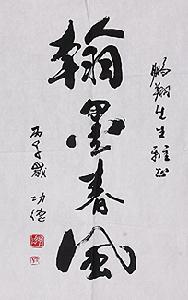 鹏翔先生雅正
翰墨春风
丙子岁
功德